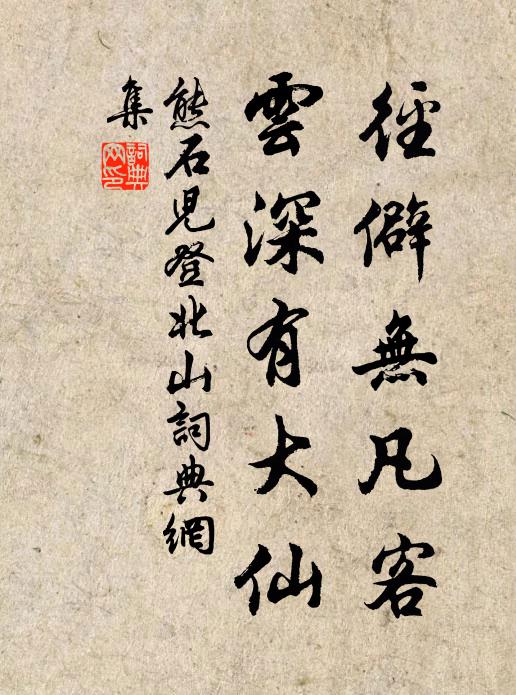 徑僻無凡客
雲深有大仙
熊石兒登北山詞典網
集
詞典
網印